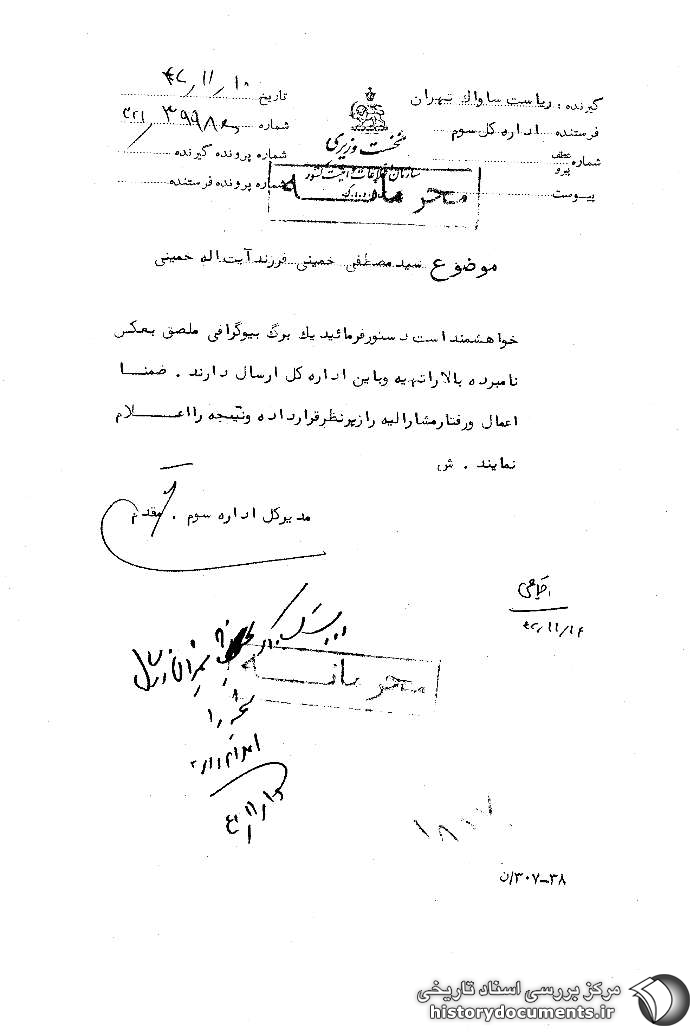 گیرنده : ریاست ساواك تهران
فرستنده اداره کل سوم
شماره عطف پیرو
پیوست
نخست وزیری
سازمان اطلاعات و امنیت کشور
س.ا.و.ا.ک
تاریخ ۱۰ ر ۱۱ ر ۴۲
شماره ۳۲۱
شماره پرونده گیرنده
شماره پرونده فرستنده
محرمانه
موضوع سید مصطفی خمینی فرزند آیت اله خمینی
خواهشمند است دستور فرمائید یك برگ بیوگرافی ملصق بعکس
نامبرده بالا را تهیه و باین اداره کل ارسال دارند . ضمنا
اعمال و رفتار مشارالیه را زیر نظر قرار داده و نتیجه را اعلام
نمایند . ش
مدیر کل اداره سوم . مقدم
محرمانه
۳۸-۳۰۷/ن
مرکز بررسی اسناد تاریخی
historydocuments.ir